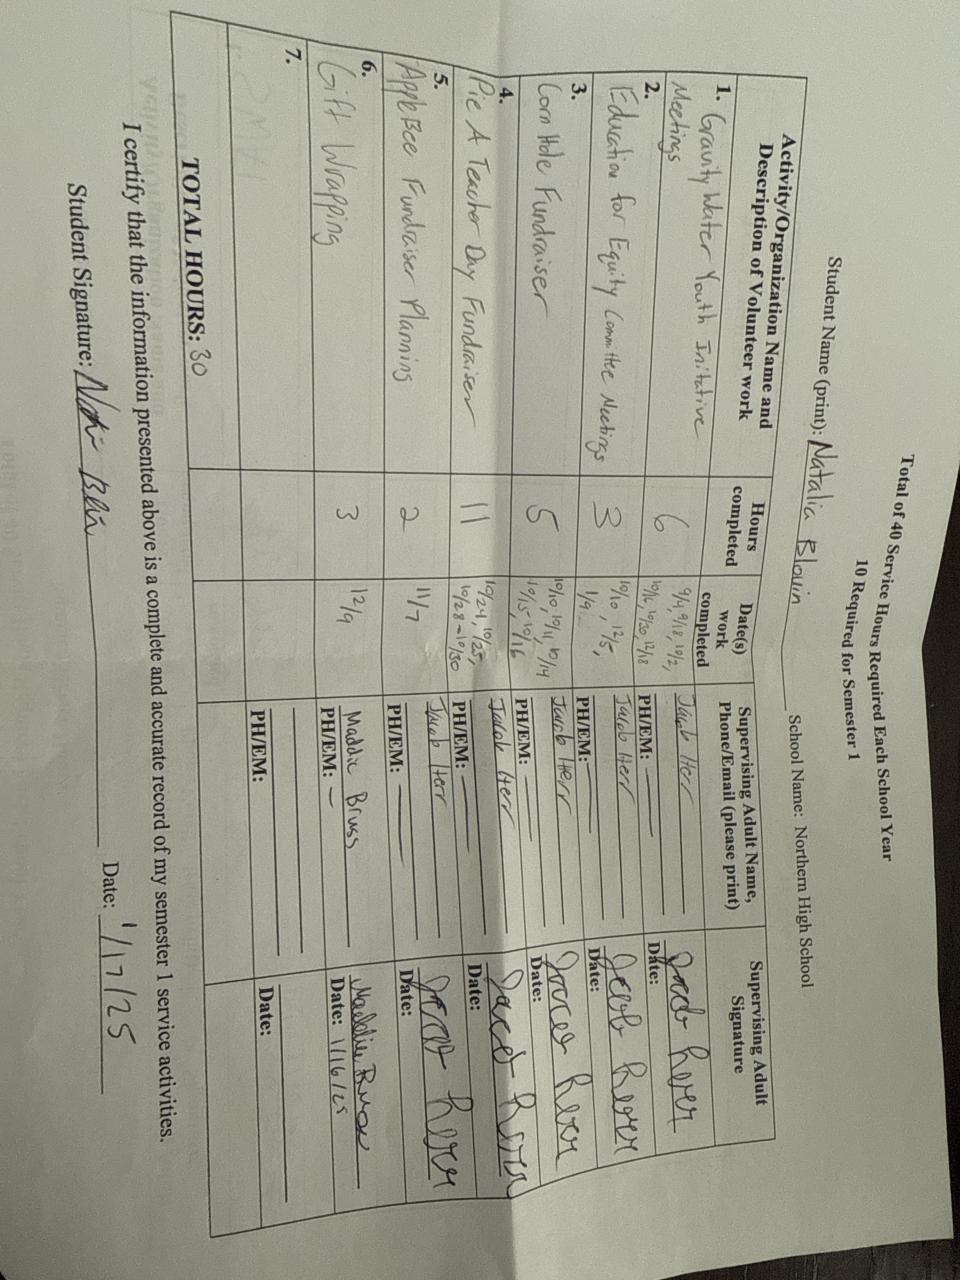 Total of 40 Service Hours Required Each School Year
10 Required for Semester 1
Student Name (print): Natalia Blouin School Name: Northern High School
Activity/Organization Name and
Description of Volunteer work
Hours
completed
Date(s)
work
completed
Supervising Adult Name,
Phone/Email (please print)
Supervising Adult
Signature
1. Gravity Water Youth Initative
Meetings
6
9/4, 9/18, 10/2,
10/16, 10/30, 12/18
Jacob Herr
PH/EM:
Date:
2.
Education for Equity Committee Meetings
3
10/10, 12/5,
1/9
Jacob Herr
PH/EM:
Date:
3.
Corn Hole Fundraiser
5
10/10, 10/11, 10/14
10/15, 10/16
Jacob Herr
PH/EM:
Date:
4.
Pie A Teacher Day Fundraiser
11
10/24, 10/25,
10/28-10/30
Jacob Herr
PH/EM:
Date:
5.
AppleBee Fundraiser Planning
2
11/7
Jacob Herr
PH/EM:
Date:
6.
Gift Wrapping
3
12/9
Maddie Bruss
PH/EM:
Maddie Bruss
Date: 1/16/25
7.
PH/EM:
Date:
TOTAL HOURS: 30
I certify that the information presented above is a complete and accurate record of my semester 1 service activities.
Student Signature: Date: 1/17/25